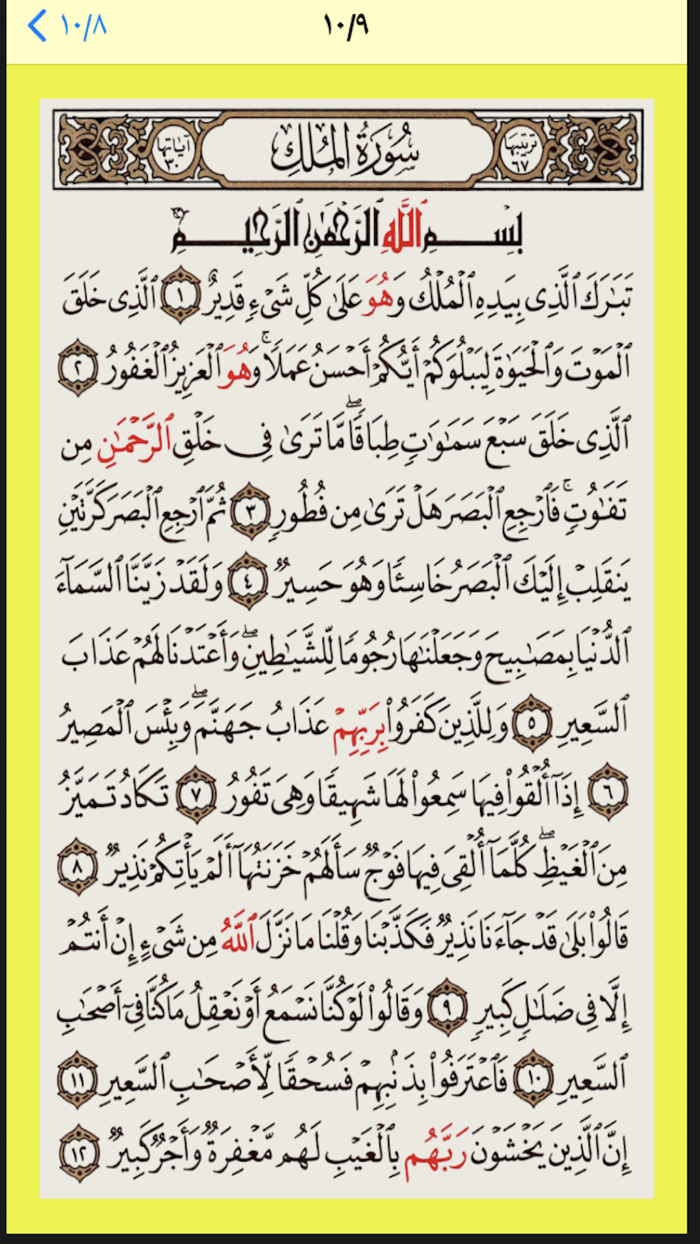 ١٠/٨
١٠/٩
ترتيبها ٦٧ سُورَةُ المُلكِ آيَاتها ٣٠
بِسْمِ ٱللَّهِ ٱلرَّحْمَٰنِ ٱلرَّحِيمِ
تَبَٰرَكَ ٱلَّذِى بِيَدِهِ ٱلْمُلْكُ وَهُوَ عَلَىٰ كُلِّ شَىْءٍ قَدِيرٌ ١ ٱلَّذِى خَلَقَ
ٱلْمَوْتَ وَٱلْحَيَوٰةَ لِيَبْلُوَكُمْ أَيُّكُمْ أَحْسَنُ عَمَلًا ۚ وَهُوَ ٱلْعَزِيزُ ٱلْغَفُورُ ٢
ٱلَّذِى خَلَقَ سَبْعَ سَمَٰوَٰتٍ طِبَاقًا ۖ مَّا تَرَىٰ فِى خَلْقِ ٱلرَّحْمَٰنِ مِن
تَفَٰوُتٍ ۚ فَٱرْجِعِ ٱلْبَصَرَ هَلْ تَرَىٰ مِن فُطُورٍ ٣ ثُمَّ ٱرْجِعِ ٱلْبَصَرَ كَرَّتَيْنِ
يَنقَلِبْ إِلَيْكَ ٱلْبَصَرُ خَاسِئًا وَهُوَ حَسِيرٌ ٤ وَلَقَدْ زَيَّنَّا ٱلسَّمَآءَ
ٱلدُّنْيَا بِمَصَٰبِيحَ وَجَعَلْنَٰهَا رُجُومًا لِّلشَّيَٰطِينِ ۖ وَأَعْتَدْنَا لَهُمْ عَذَابَ
ٱلسَّعِيرِ ٥ وَلِلَّذِينَ كَفَرُوا۟ بِرَبِّهِمْ عَذَابُ جَهَنَّمَ ۖ وَبِئْسَ ٱلْمَصِيرُ
٦ إِذَآ أُلْقُوا۟ فِيهَا سَمِعُوا۟ لَهَا شَهِيقًا وَهِىَ تَفُورُ ٧ تَكَادُ تَمَيَّزُ
مِنَ ٱلْغَيْظِ ۖ كُلَّمَآ أُلْقِىَ فِيهَا فَوْجٌ سَأَلَهُمْ خَزَنَتُهَآ أَلَمْ يَأْتِكُمْ نَذِيرٌ ٨
قَالُوا۟ بَلَىٰ قَدْ جَآءَنَا نَذِيرٌ فَكَذَّبْنَا وَقُلْنَا مَا نَزَّلَ ٱللَّهُ مِن شَىْءٍ إِنْ أَنتُمْ
إِلَّا فِى ضَلَٰلٍ كَبِيرٍ ٩ وَقَالُوا۟ لَوْ كُنَّا نَسْمَعُ أَوْ نَعْقِلُ مَا كُنَّا فِىٓ أَصْحَٰبِ
ٱلسَّعِيرِ ١٠ فَٱعْتَرَفُوا۟ بِذَنۢبِهِمْ فَسُحْقًا لِّأَصْحَٰبِ ٱلسَّعِيرِ ١١
إِنَّ ٱلَّذِينَ يَخْشَوْنَ رَبَّهُم بِٱلْغَيْبِ لَهُم مَّغْفِرَةٌ وَأَجْرٌ كَبِيرٌ ١٢